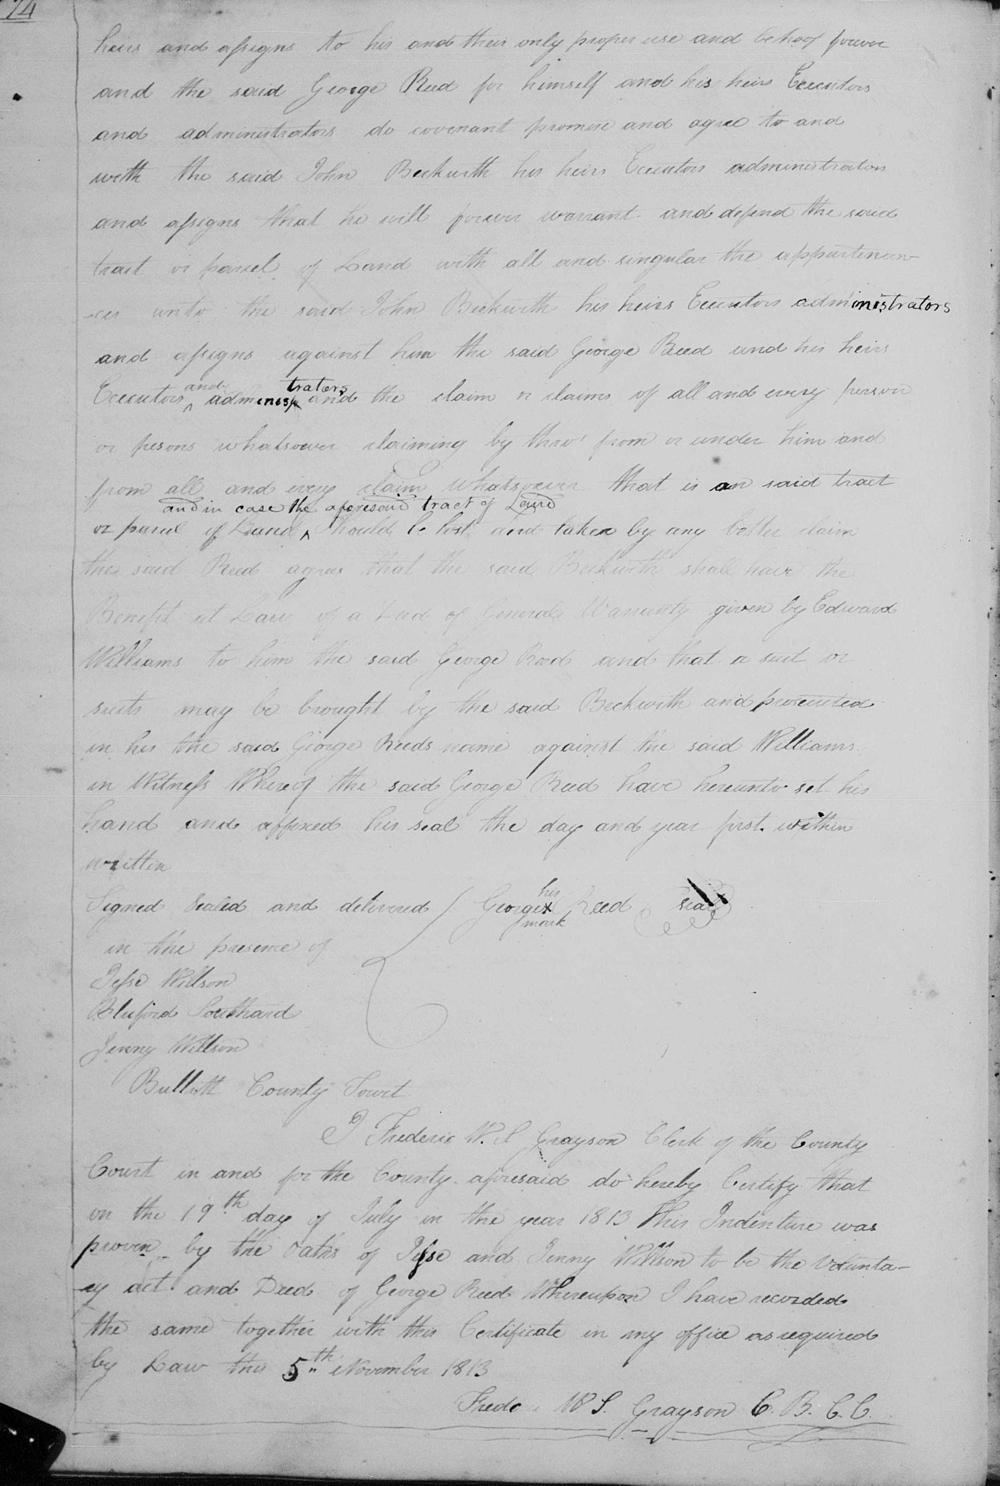 74
heirs and assigns to his and their only proper use and behoof forever
and the said George Reed for himself and his heirs Executors
and administrators do covenant promise and agree to and
with the said John Beckwith his heirs Executors administrators
and assigns that he will forever warrant and defend the said
tract or parcel of Land with all and singular the appurtenan-
-ces unto the said John Beckwith his heirs Executors administrators
and assigns against him the said George Reed and his heirs
Executors and administrators and the claim or claims of all and every person
or pesons whatsoever claiming by thro' from or under him and
from all and every claim whatsoever that is an said tract
or parcel of Land and in case the aforesaid tract of Land should be lost and taken by any better claim
the said Reed agrees that the said Beckwith shall have the
Benefit at Law of a Deed of General Warranty given by Edward
Williams to him the said George Reed and that a suit or
suits may be brought by the said Beckwith and prosecuted
in his the said George Reeds name against the said Williams
in Witness Whereof the said George Reed have hereunto set his
hand and affixed his seal the day and year first within
written
Signed Sealed and delivered George his x mark Reed seal
in the presence of
Jesse Willson
Bluford Southard
Jenny Willson
Bullitt County Sowit
I Frederic W. S. Grayson Clerk of the County
Court in and for the County aforesaid do hereby Certify that
on the 19th day of July in the year 1813 This Indenture was
proven by the oaths of Jesse and Jenny Willson to be the volunta-
-ry act and Deed of George Reed Whereupon I have recorded
the same together with this Certificate in my office as required
by Law this 5th November 1813
Fredc W S. Grayson C. B. C. C.